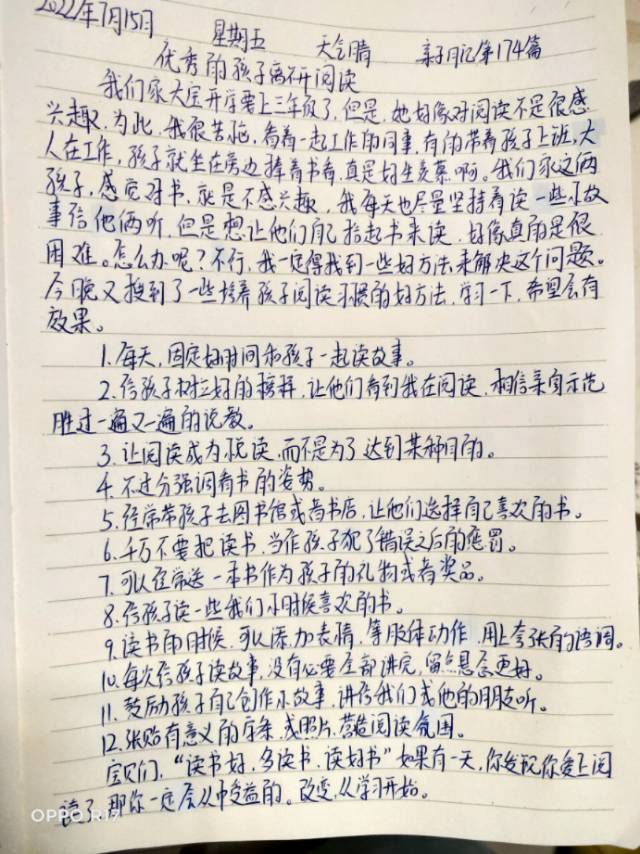 2022年7月15日 星期五 天气晴 亲子日记第174篇
优秀的孩子离不开阅读
我们家大宝开学要上三年级了,但是,她好像对阅读不是很感
兴趣,为此,我很苦恼,看着一起工作的同事,有的带着孩子上班,大
人在工作,孩子就坐在旁边捧着书看,真是好生羡慕啊。我们家这俩
孩子,感觉对书,就是不感兴趣,我每天也尽量坚持着读一些小故
事给他俩听,但是想让他们自己拾起书来读,好像真的是很
困难。怎么办呢?不行,我一定得找到一些好方法,来解决这个问题。
今晚又搜到了一些培养孩子阅读习惯的好方法,学习一下,希望会有
效果。
1.每天,固定好时间和孩子一起读故事。
2.给孩子树立好的榜样,让他们看到我在阅读,相信亲自示范
胜过一遍又一遍的说教。
3.让阅读成为悦读,而不是为了达到某种目的。
4.不过分强调看书的姿势。
5.经常带孩子去图书馆或者书店,让他们选择自己喜欢的书。
6.千万不要把读书,当作孩子犯了错误之后的惩罚。
7.可以经常送一本书作为孩子的礼物或者奖品。
8.给孩子读一些我们小时候喜欢的书。
9.读书的时候,可以添加表情,等肢体动作,用上夸张的语调。
10.每次给孩子读故事,没有必要全部讲完,留点悬念更好。
11.鼓励孩子自己创作小故事,讲给我们或他的朋友听。
12.张贴有意义的字条,或照片,营造阅读氛围。
宝贝们,“读书好,多读书,读好书”如果有一天,你发现你爱上阅
读了,那你一定会从中受益的。改变,从学习开始。
OPPO R17